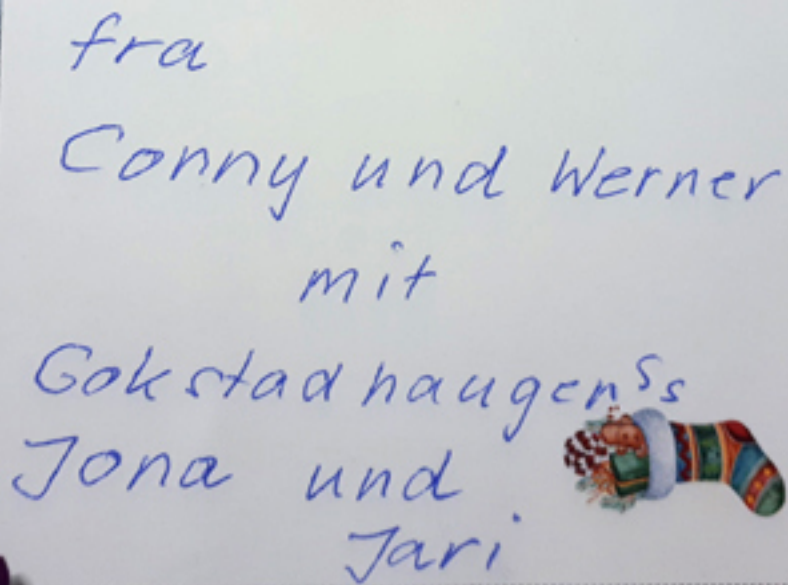 fra
Conny und Werner
mit
Gokstadhaugen's
Jona und
Jari